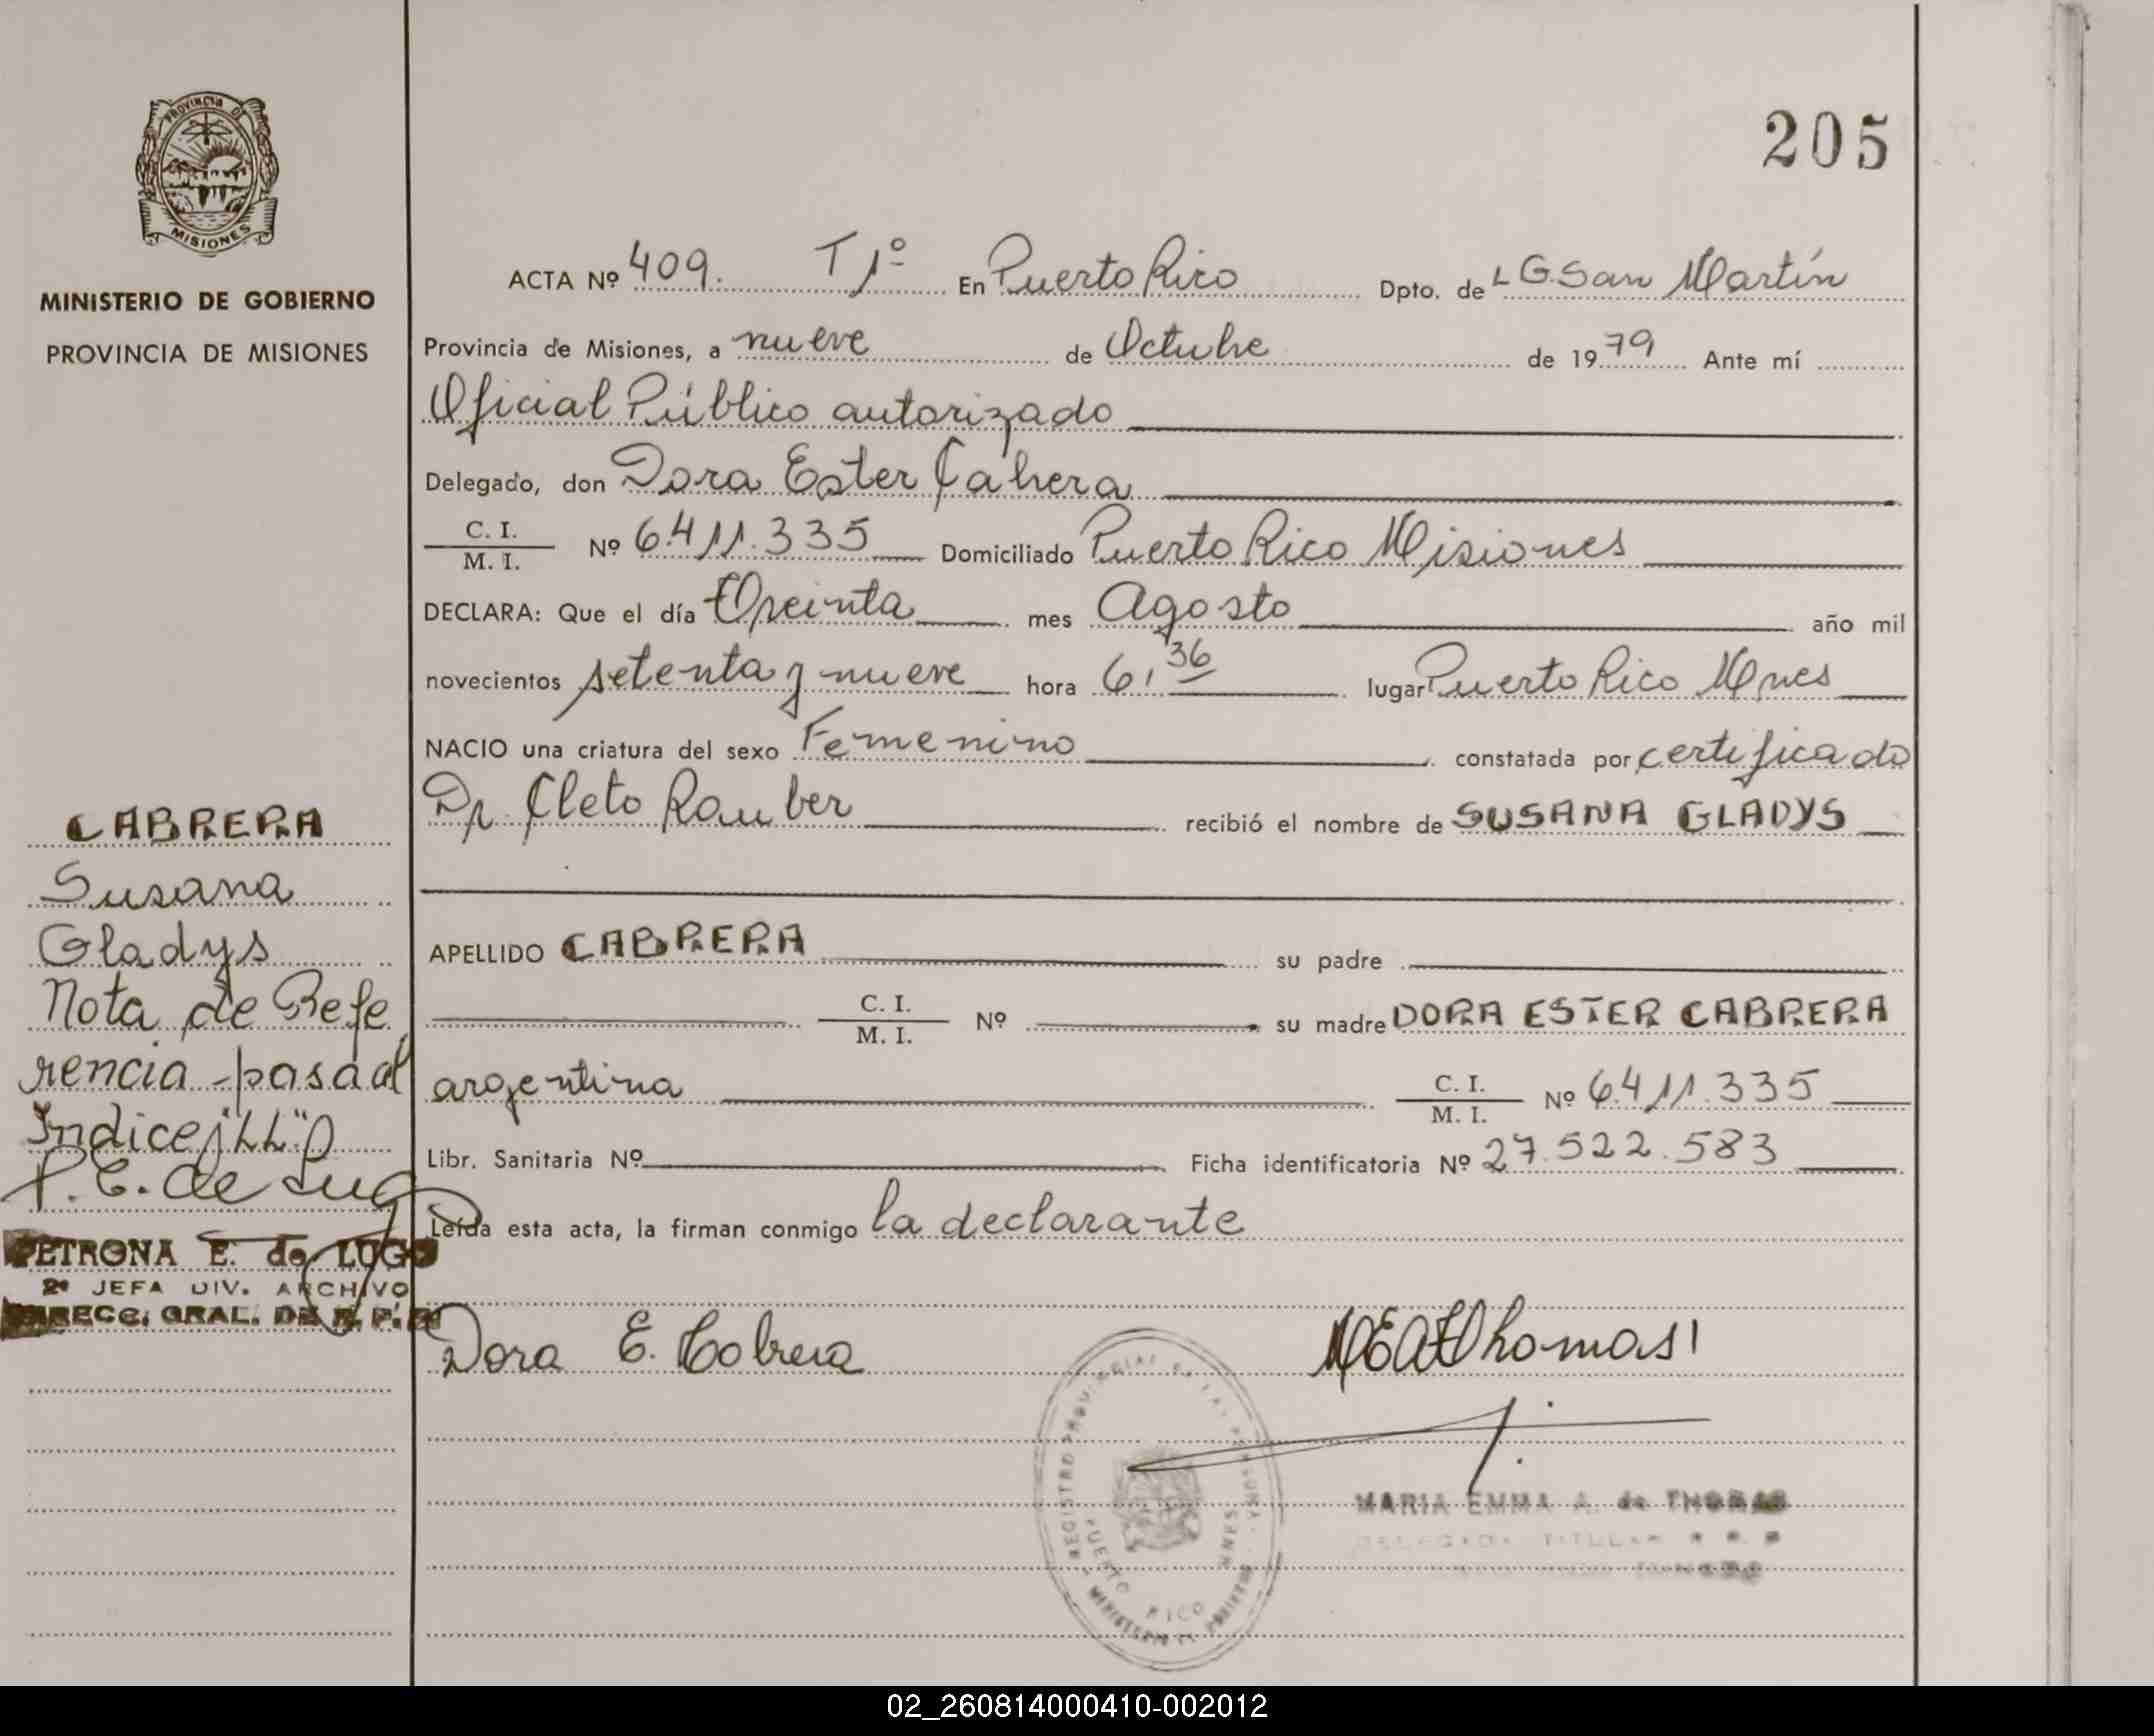 205
PROVINCIA DE
MISIONES
MINISTERIO DE GOBIERNO
PROVINCIA DE MISIONES
ACTA Nº 409. T 1º En Puerto Rico Dpto. de L G. San Martín
Provincia de Misiones, a nueve de Octubre de 1979 Ante mí
Oficial Público autorizado
Delegado, don Dora Ester Cabrera
C. I.
M. I.
Nº 6.411.335 Domiciliado Puerto Rico Misiones
DECLARA: Que el día treinta mes Agosto año mil
novecientos setenta y nueve hora 6,36 lugar Puerto Rico Mnes
NACIO una criatura del sexo Femenino constatada por certificado
Dr. Cleto Rauber recibió el nombre de SUSANA GLADYS
APELLIDO CABRERA su padre
C. I.
M. I.
Nº su madre DORA ESTER CABRERA
argentina C. I.
M. I.
Nº 6.411.335
Libr. Sanitaria Nº Ficha identificatoria Nº 27.522.583
Leída esta acta, la firman conmigo la declarante
Dora E. Cabrera
MEAThomas
MARIA EMMA A. de THOMAS
REGISTRO PROVINCIAL DE LAS PERSONAS
PUERTO RICO MNES
MINISTERIO DE GOBIERNO
CABRERA
Susana
Gladys
Nota de Refe
rencia pasa al
Indice "LL"
P. E. de Lugo
PETRONA E. de LUGO
2º JEFA DIV. ARCHIVO
DIRECC. GRAL. DE R. P. P.
02_260814000410-002012